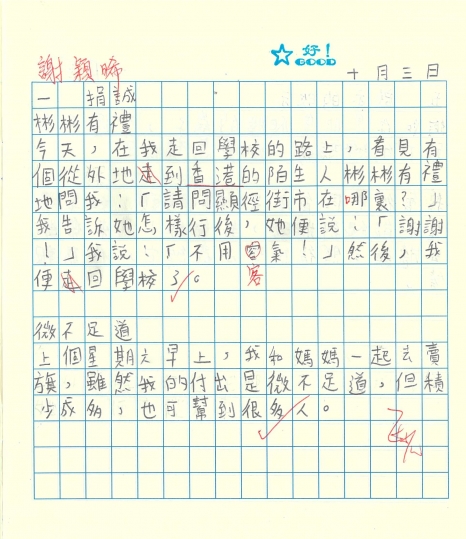 好！
GOOD
謝穎晞
十月三日
一 捐誠
彬彬有禮
今天，在我走回學校的路上，看見有
個從外地走到香港的陌生人彬彬有禮
地問我：「請問顯徑街市在哪裏？」
我告訴她怎樣行後，她便說：「謝謝
！」我說：「不用客氣！」然後，我
客
便走回學校了。
微不足道
上個星期六早上，我和媽媽一起去賣
旗，雖然我的付出是微不足道，但積
少成多，也可幫到很多人。